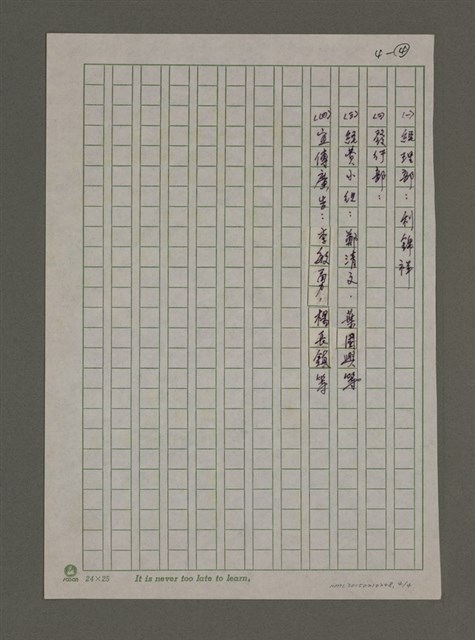 4-④
(一)經理部：利錦祥
(二)發行部：
(三)統貫小組：鄭清文、葉國興等
(四)宣傳廣告：李敏勇、楊長鎮等
24×25
It is never too late to learn.